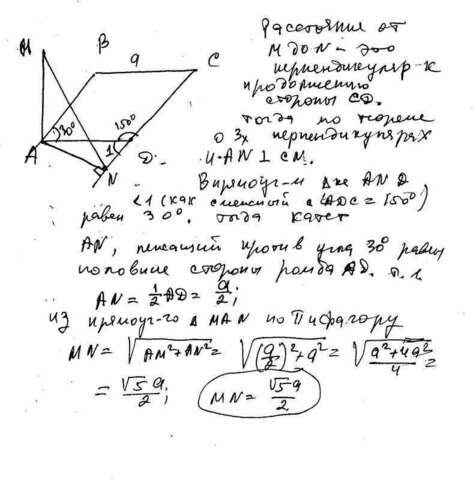 M
B
C
a
30°
150°
1
A
D
N
Расстояние от
M до N – это
перпендикуляр к
продолжению
стороны CD.
Тогда по теореме
о 3х перпендикулярах
и AN ⊥ CM.
В прямоуг-м Δке AND
∠1 (как смежный с ∠ADC = 150°)
равен 30°. Тогда катет
AN, лежащий против угла 30° равен
половине стороны ромба AD. т.е.
AN = 1/2 AD = a/2;
из прямоуг-го Δ MAN по Пифагору
MN = √(AM² + AN²) = √((a/2)² + a²) = √((a² + 4a²)/4) =
= √5 a/2; MN = √5 a/2